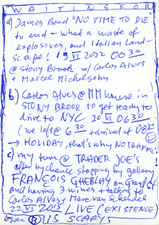 WAITINGFOR
a) James Bond "NO TIME TO DIE
to end – what a waste of
explosives, and Italian Land-
scape! 19 VI 2022 0030
@ Stony Brook w/ Carlos Alves
+ Marcee Michelson
b) Carlos Alves @ MM house in
STONY BROOK to get ready to
drive to NYC 20 VI 0630
(we left @ 630 → arrival @
HOLIDAY, that's why NO TRAFFIC!
c) my turn @ TRADER JOE'S
after by chance stopping by gallery
FRANÇOIS GHEBALY on Grand St
and having 3 wines + talking to
Carlos Alves + Marc van
22 VI 2022 LIVE (EXISTENCE
IS SCARY)